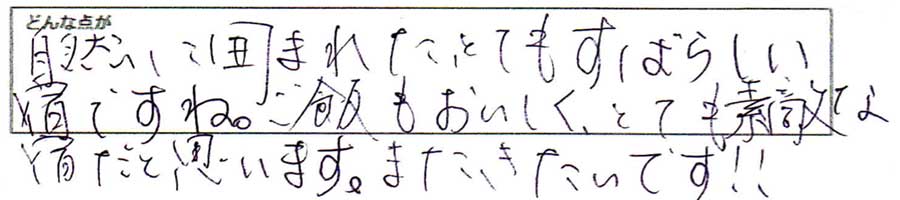 どんな点が
自然に囲まれたとてもすばらしい
宿ですね。ご飯もおいしく、とても素敵な
宿だと思います。またきたいです!!